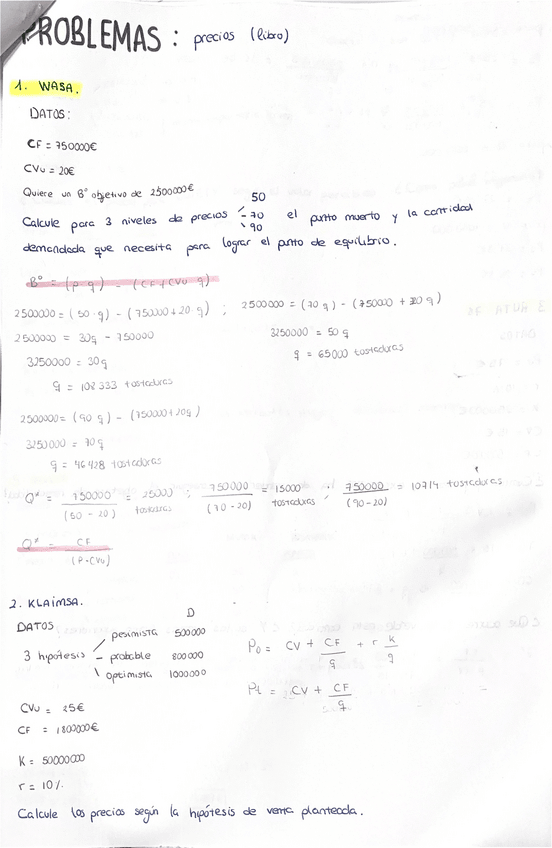 PROBLEMAS: precios (libro)
1. WASA.
DATOS:
CF = 750000€
CVu = 20€
Quiere un Bº objetivo de 2500000€
Calcule para 3 niveles de precios 50 - 70 - 90 el punto muerto y la cantidad
demandada que necesita para lograr el punto de equilibrio.
Bº = (p · q) - (CF + CVu · q)
2500000 = (50 · q) - (750000 + 20 · q) ; 2500000 = (70 q) - (750000 + 20 q)
2500000 = 30q - 750000
3250000 = 50 q
3250000 = 30q
q = 65000 tostaduras
q = 108 333 tostaduras
2500000 = (90 q) - (750000 + 20q)
3250000 = 70 q
q = 46 428 tostaduras
Q* = 750000 / (50 - 20) = 25000 ; 750000 / (70 - 20) = 15000 tostaduras ; 750000 / (90 - 20) = 10714 tostaduras
Q* = CF / (P - CVu)
2. KLAIMSA.
DATOS D
3 hipótesis
pesimista 500000
probable 800000
optimista 1000000
P₀ = CV + CF/q + r K/q
Pt = CV + CF/q
CVu = 25€
CF = 1800000€
K = 50000000
r = 10%
Calcule los precios según la hipótesis de venta planteada.